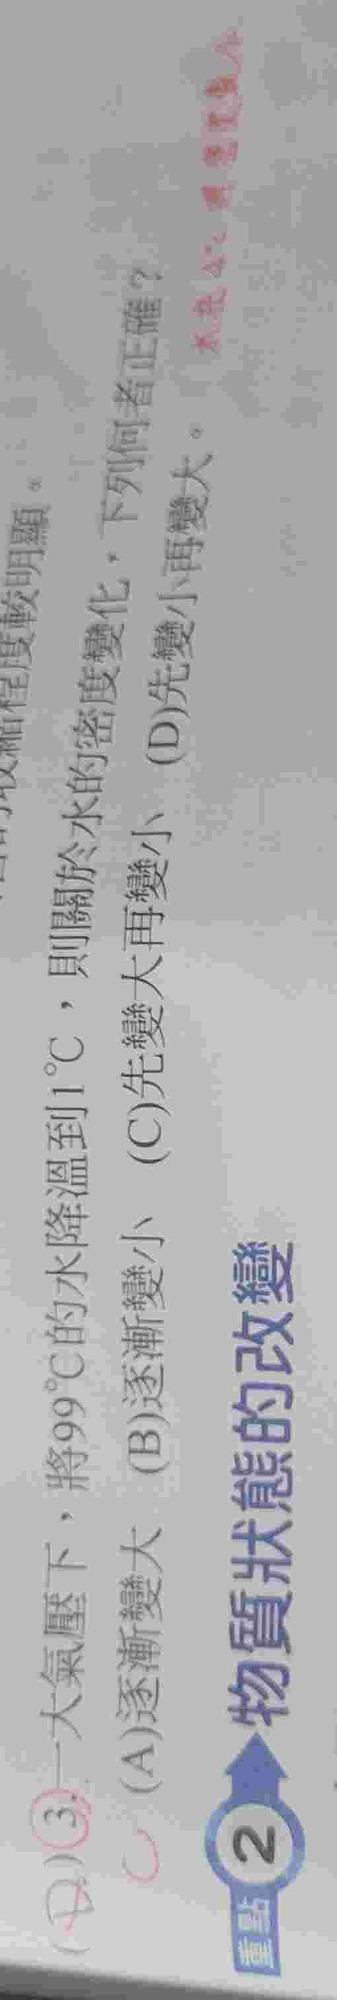 收縮程度較明顯。
(D)3.一大氣壓下，將99℃的水降溫到1℃，則關於水的密度變化，下列何者正確？
C (A)逐漸變大 (B)逐漸變小 (C)先變大再變小 (D)先變小再變大。
水在4℃時密度最大
重點2 物質狀態的改變